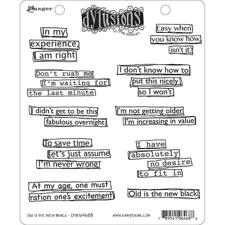 Ranger
Dylusions
In my
experience,
I am right
Easy when
you know how,
isn't it?
Don't rush me
I'm waiting for
the last minute
I don't know how to
put this nicely
so I won't
I didn't get to be this
fabulous overnight
I'm not getting older,
I'm increasing in value
To save time,
let's just assume
I'm never wrong
I have
absolutely
no desire
to fit in
At my age, one must
ration one's excitement
Old is the new black!